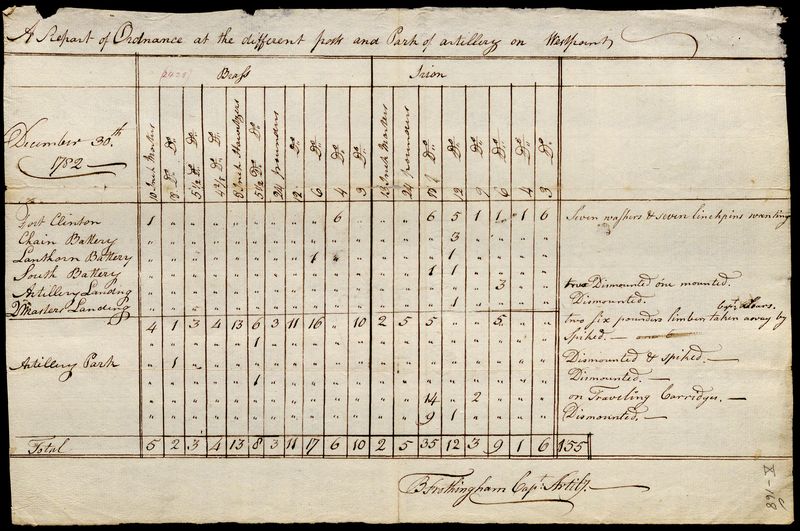 A Report of Ordnance at the different posts and Park of artillery on Westpoint
Brass Iron
December 30.th
1782
10 Inch Mortars
8 Do. Do.
5½ Do. Do.
4⅖ Do. Do.
8 Inch Howitzers
5½ Do. Do.
24 pounders
12 Do.
6 Do.
4 Do.
3 Do.
Inch Mortars
24 pounders
18 Do.
12 Do.
9 Do.
6 Do.
4 Do.
3 Do.
Fort Clinton 1 " " " " " " " " 6 " " " 6 5 1 1 1 6 Seven washers & seven linchpins wanting
Chain Battery " " " " " " " " " " " " " " 3 " " " "
Lanthorn Battery " " " " " " " " 1 " " " " " 1 " " " "
South Battery " " " " " " " " " " " " " 1 1 " " " "
Artillery Landing " " " " " " " " " " " " " " " " 3 " " two Dismounted one mounted.
Qr Masters Landing " " " " " " " " " " " " " " 1 " " " " Dismounted.
4 1 3 4 13 6 3 11 16 " 10 2 5 5 " " 5 " " two six pounders limbers taken away by Capt.
" " " " " 1 " " " " " " " " " " " " " Spiked. —
Artillery Park " 1 " " " " " " " " " " " " " " " " " Dismounted & spiked. —
" " " " " 1 " " " " " " " " " " " " " Dismounted. —
" " " " " " " " " " " " " 14 " 2 " " " on Traveling Carridges. —
" " " " " " " " " " " " " 9 1 " " " " Dismounted. —
Total 5 2 3 4 13 8 3 11 17 6 10 2 5 35 12 3 9 1 6 155
B Frothingham Capt. Artily.
X-168